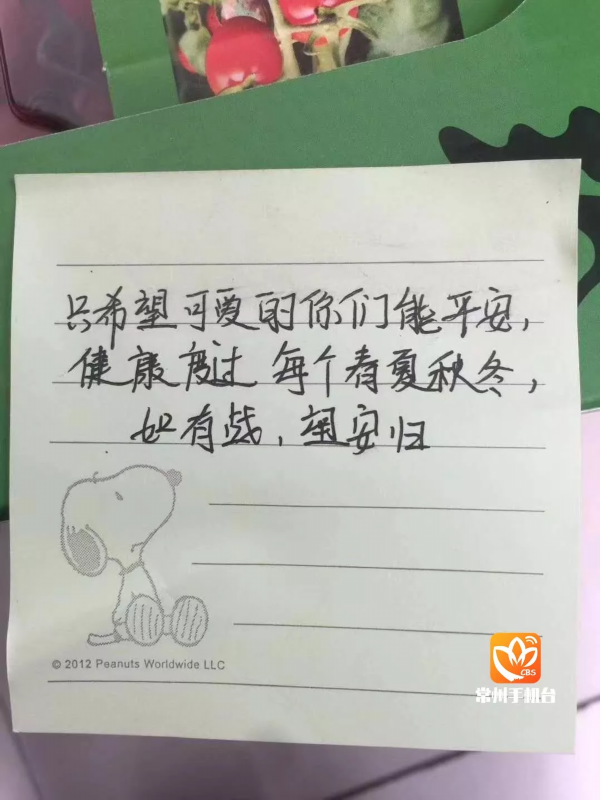 只希望可爱的你们能平安,
健康度过 每个春夏秋冬,
如有战,望安归
© 2012 Peanuts Worldwide LLC
CBS
常州手机台